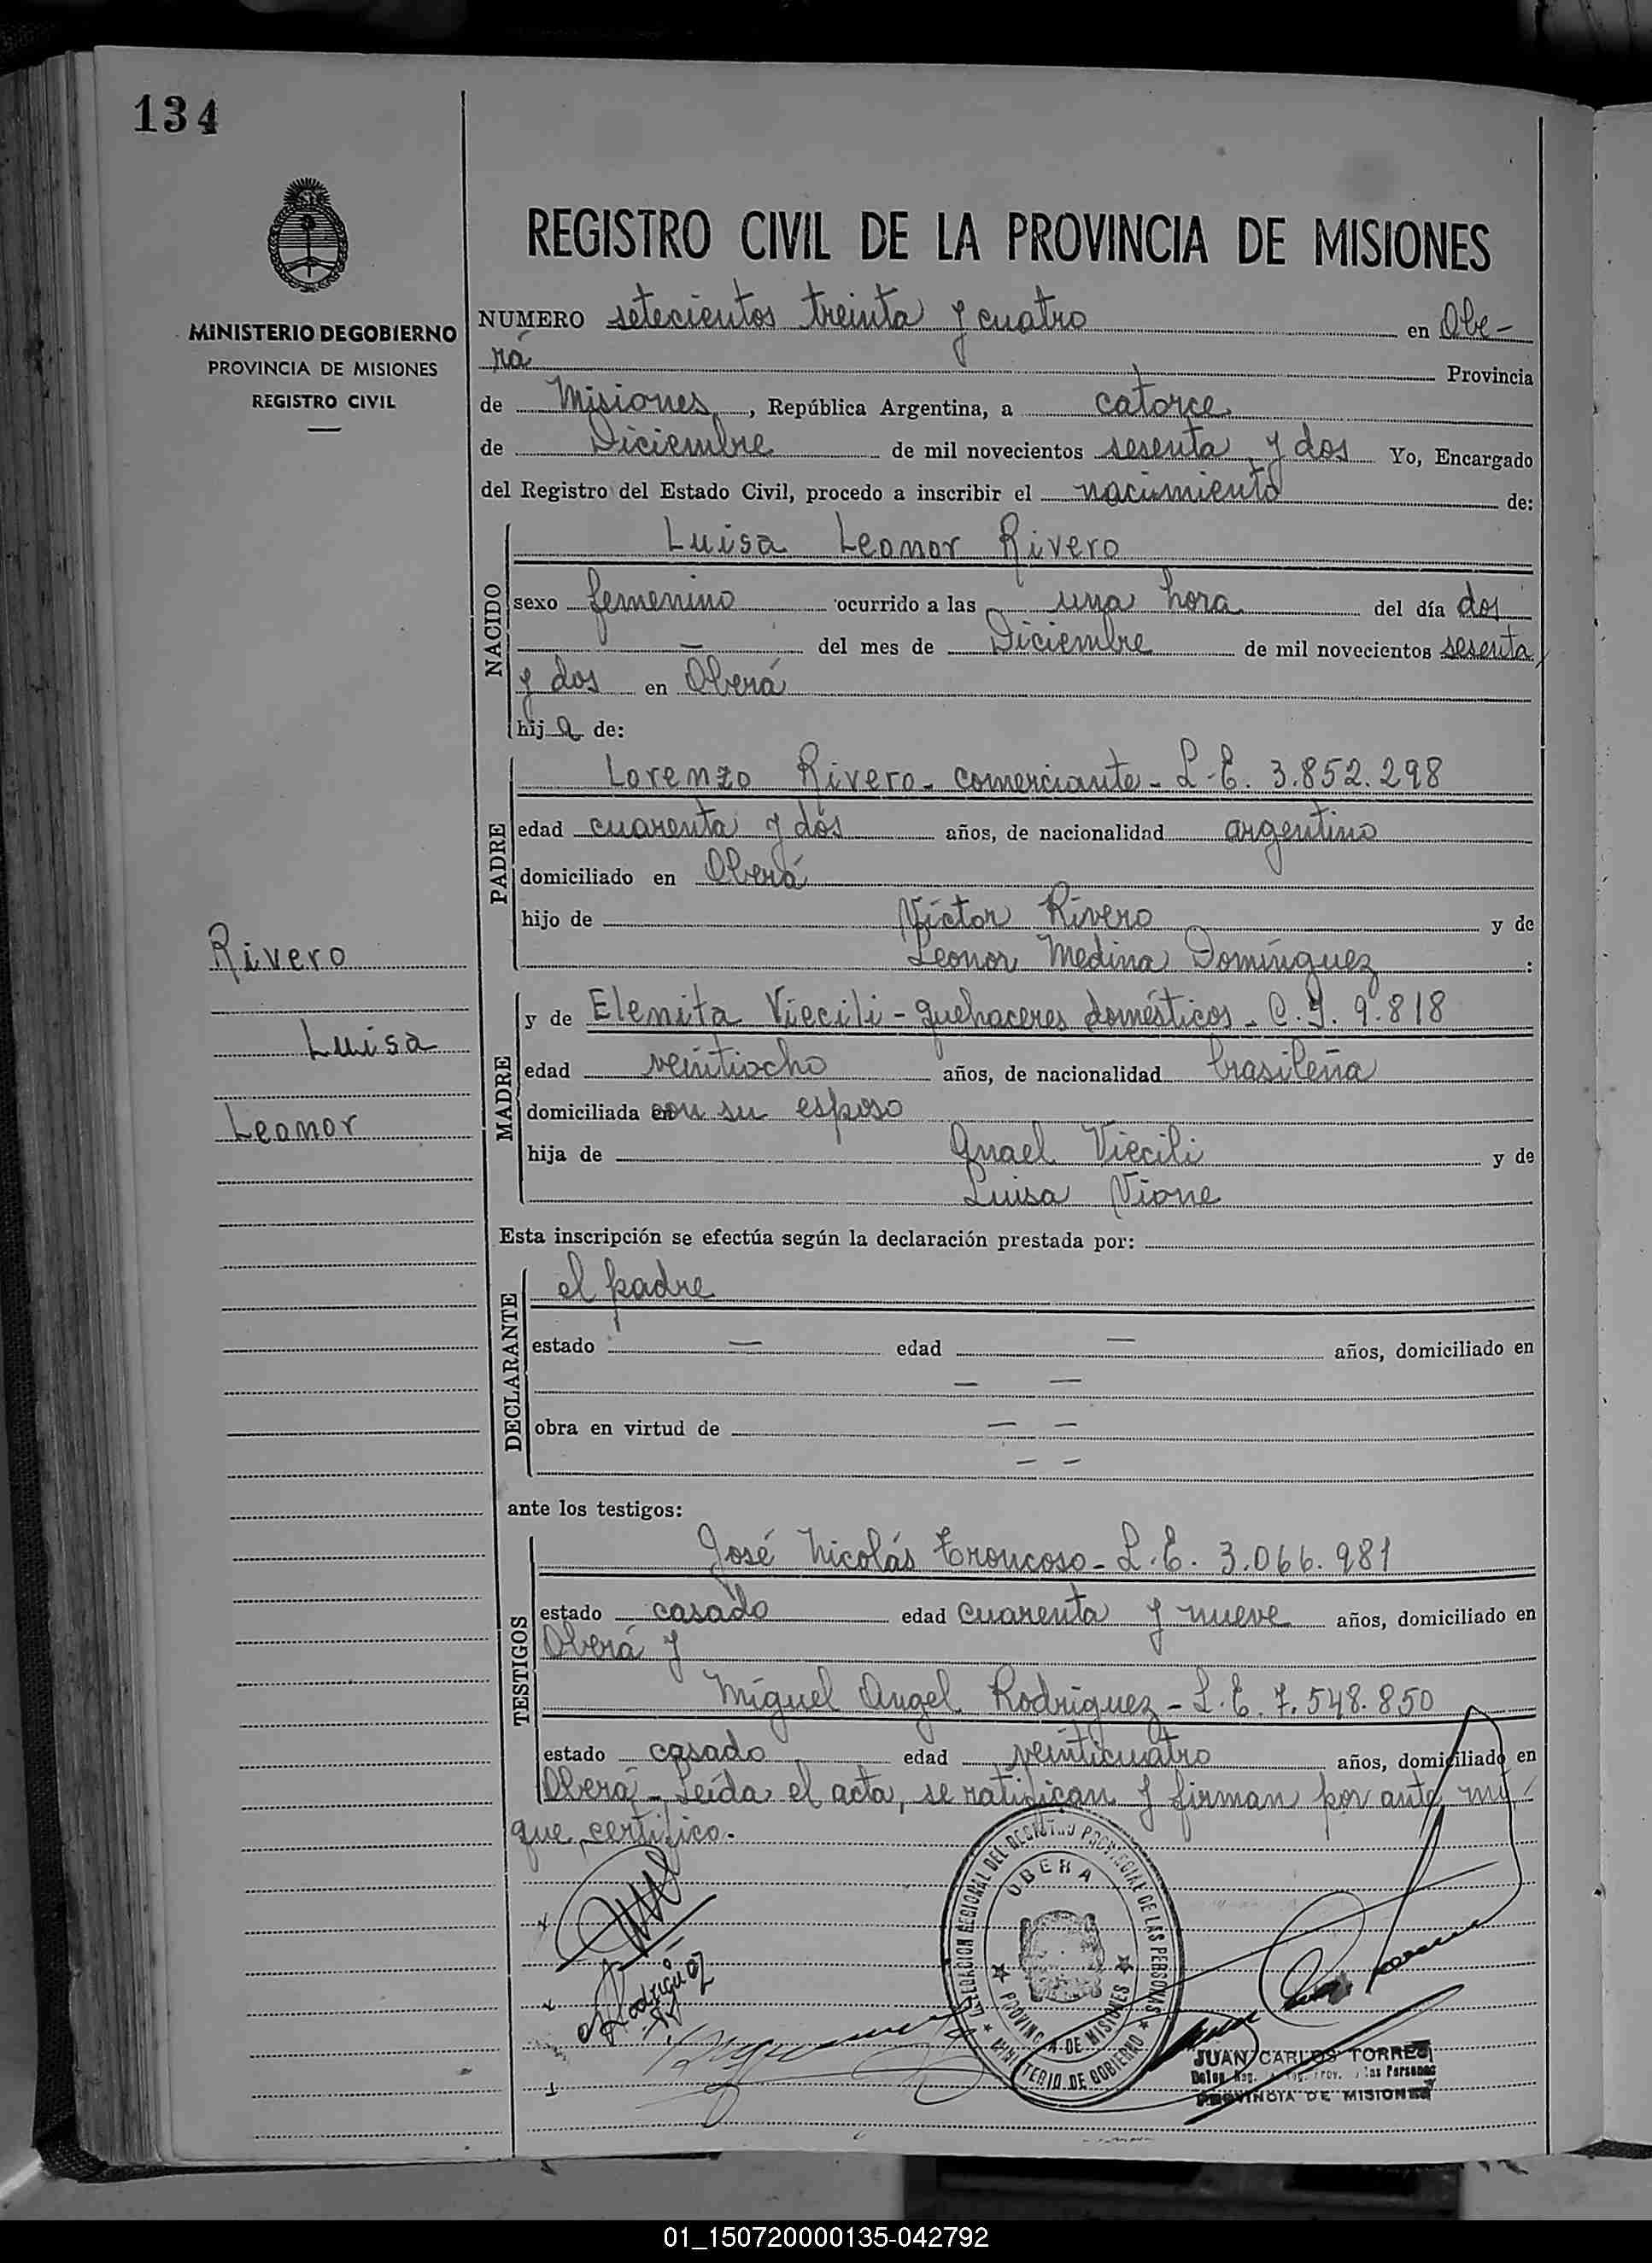 134
MINISTERIO DE GOBIERNO
PROVINCIA DE MISIONES
REGISTRO CIVIL
REGISTRO CIVIL DE LA PROVINCIA DE MISIONES
NUMERO setecientos treinta y cuatro en Obe-
rá Provincia
de Misiones, República Argentina, a catorce
de Diciembre de mil novecientos sesenta y dos Yo, Encargado
del Registro del Estado Civil, procedo a inscribir el nacimiento de:
NACIDO
Luisa Leonor Rivero
sexo femenino ocurrido a las una hora del día dos
— del mes de Diciembre de mil novecientos sesenta
y dos en Oberá
hija de:
PADRE
Lorenzo Rivero - comerciante - L.E. 3.852.298
edad cuarenta y dós años, de nacionalidad argentino
domiciliado en Oberá
hijo de Víctor Rivero y de
Leonor Medina Domínguez :
Rivero
Luisa
Leonor
MADRE
y de Elenita Viecili - quehaceres domésticos - C.I. 9.818
edad veintiocho años, de nacionalidad brasileña
domiciliada en con su esposo
hija de Viecili y de
Luisa Vione
Esta inscripción se efectúa según la declaración prestada por:
DECLARANTE
el padre
estado — edad — años, domiciliado en
— —
obra en virtud de — —
— —
ante los testigos:
TESTIGOS
José Nicolás Troncoso - L.E. 3.066.981
estado casado edad cuarenta y nueve años, domiciliado en
Oberá y
Miguel Angel Rodríguez - L.E. 7.548.850
estado casado edad veinticuatro años, domiciliado en
Oberá - Leída el acta, se ratifican y firman por ante mí
que certifico.
DELEGACION REGIONAL DEL REGISTRO PROVINCIAL DE LAS PERSONAS
OBERA
PROVINCIA DE MISIONES
MINISTERIO DE GOBIERNO
Rodríguez
JUAN CARLOS TORRES
Deleg. Reg. Reg. Prov. de las Personas
PROVINCIA DE MISIONES
01_150720000135-042792